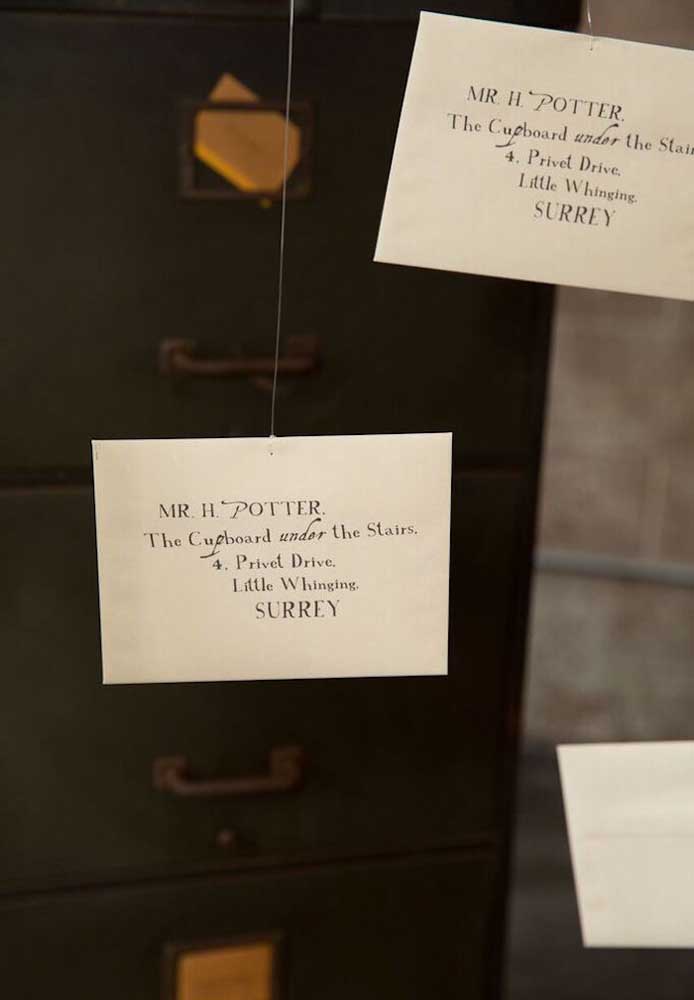 MR. H. POTTER,
The Cupboard under the Stair
4, Privet Drive,
Little Whinging,
SURREY
MR. H. POTTER,
The Cupboard under the Stairs,
4, Privet Drive,
Little Whinging,
SURREY